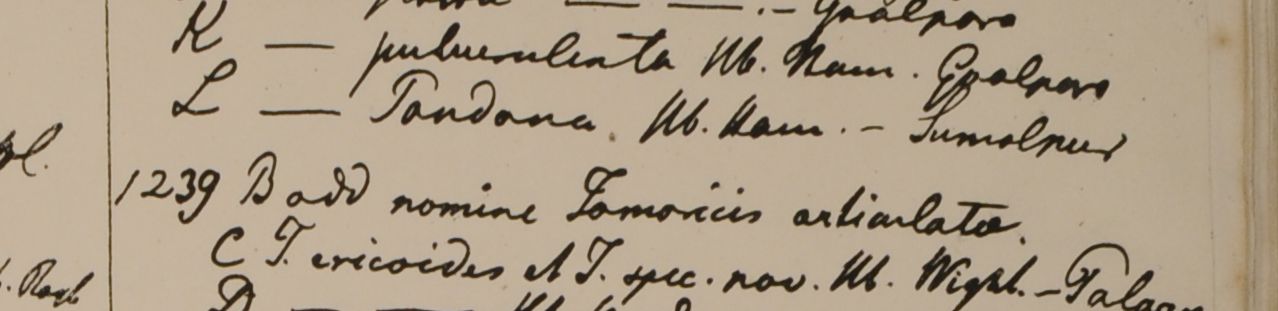 — — . – Goalpara
K — pulverulenta Hb. Ham. Goalpara
L — Tandana. Hb. Ham. – Sumalpur
gl.
1239 B add nomine Tamaricis articulatae.
C T. ericoides et T. spec. nov. Hb. Wight. –
. Roxb
D — — Hb.